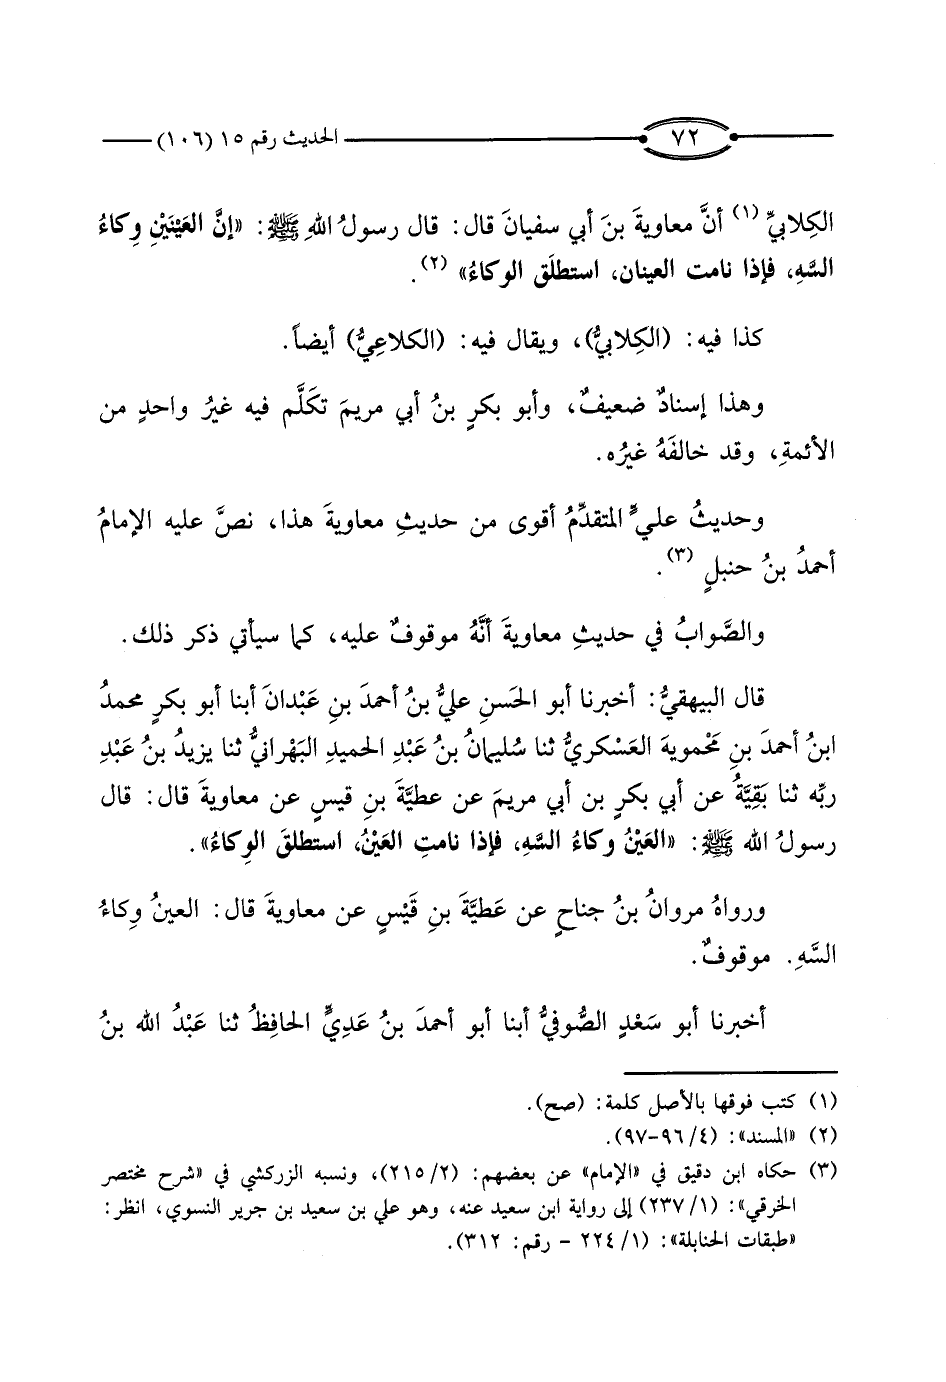 ٧٢ الحديث رقم ١٥ (١٠٦)
الكِلابيِّ (١) أنَّ معاويةَ بنَ أبي سفيانَ قال: قال رسولُ اللهِ ﷺ: «إنَّ العَيْنَيْنِ وِكاءُ
السَّهِ، فإذا نامت العينان، استطلَق الوكاءُ» (٢).
كذا فيه: (الكِلابيُّ)، ويقال فيه: (الكلاعِيُّ) أيضاً.
وهذا إسنادٌ ضعيفٌ، وأبو بكرٍ بنُ أبي مريمَ تكلَّم فيه غيرُ واحدٍ من
الأئمةِ، وقد خالفَهُ غيرُه.
وحديثُ عليٍّ المتقدِّمُ أقوى من حديثِ معاويةَ هذا، نصَّ عليه الإمامُ
أحمدُ بنُ حنبلٍ (٣).
والصَّوابُ في حديثِ معاويةَ أنَّهُ موقوفٌ عليه، كما سيأتي ذكر ذلك.
قال البيهقيُّ: أخبرنا أبو الحَسنِ عليُّ بنُ أحمدَ بنِ عَبْدانَ أبنا أبو بكرٍ محمدُ
ابنُ أحمدَ بنِ مَحْمويةَ العَسْكريُّ ثنا سُليمانُ بنُ عَبْدِ الحميدِ البَهْرانيُّ ثنا يزيدُ بنُ عَبْدِ
ربِّه ثنا بَقِيَّةُ عن أبي بكرٍ بن أبي مريمَ عن عطيَّةَ بنِ قيسٍ عن معاويةَ قال: قال
رسولُ الله ﷺ: «العَيْنُ وكاءُ السَّهِ، فإذا نامتِ العَيْنُ، استطلقَ الوِكاءُ».
ورواهُ مروانُ بنُ جناحٍ عن عَطيَّةَ بنِ قَيْسٍ عن معاويةَ قال: العينُ وِكاءُ
السَّهِ. موقوفٌ.
أخبرنا أبو سَعْدٍ الصُّوفيُّ أبنا أبو أحمدَ بنُ عَديٍّ الحافِظُ ثنا عَبْدُ الله بنُ
(١) كتب فوقها بالأصل كلمة: (صح).
(٢) «المسند»: (٤/ ٩٦-٩٧).
(٣) حكاه ابن دقيق في «الإمام» عن بعضهم: (٢/ ٢١٥)، ونسبه الزركشي في «شرح مختصر
الخرقي»: (١/ ٢٣٧) إلى رواية ابن سعيد عنه، وهو علي بن سعيد بن جرير النسوي، انظر:
«طبقات الحنابلة»: (١/ ٢٢٤ - رقم: ٣١٢).